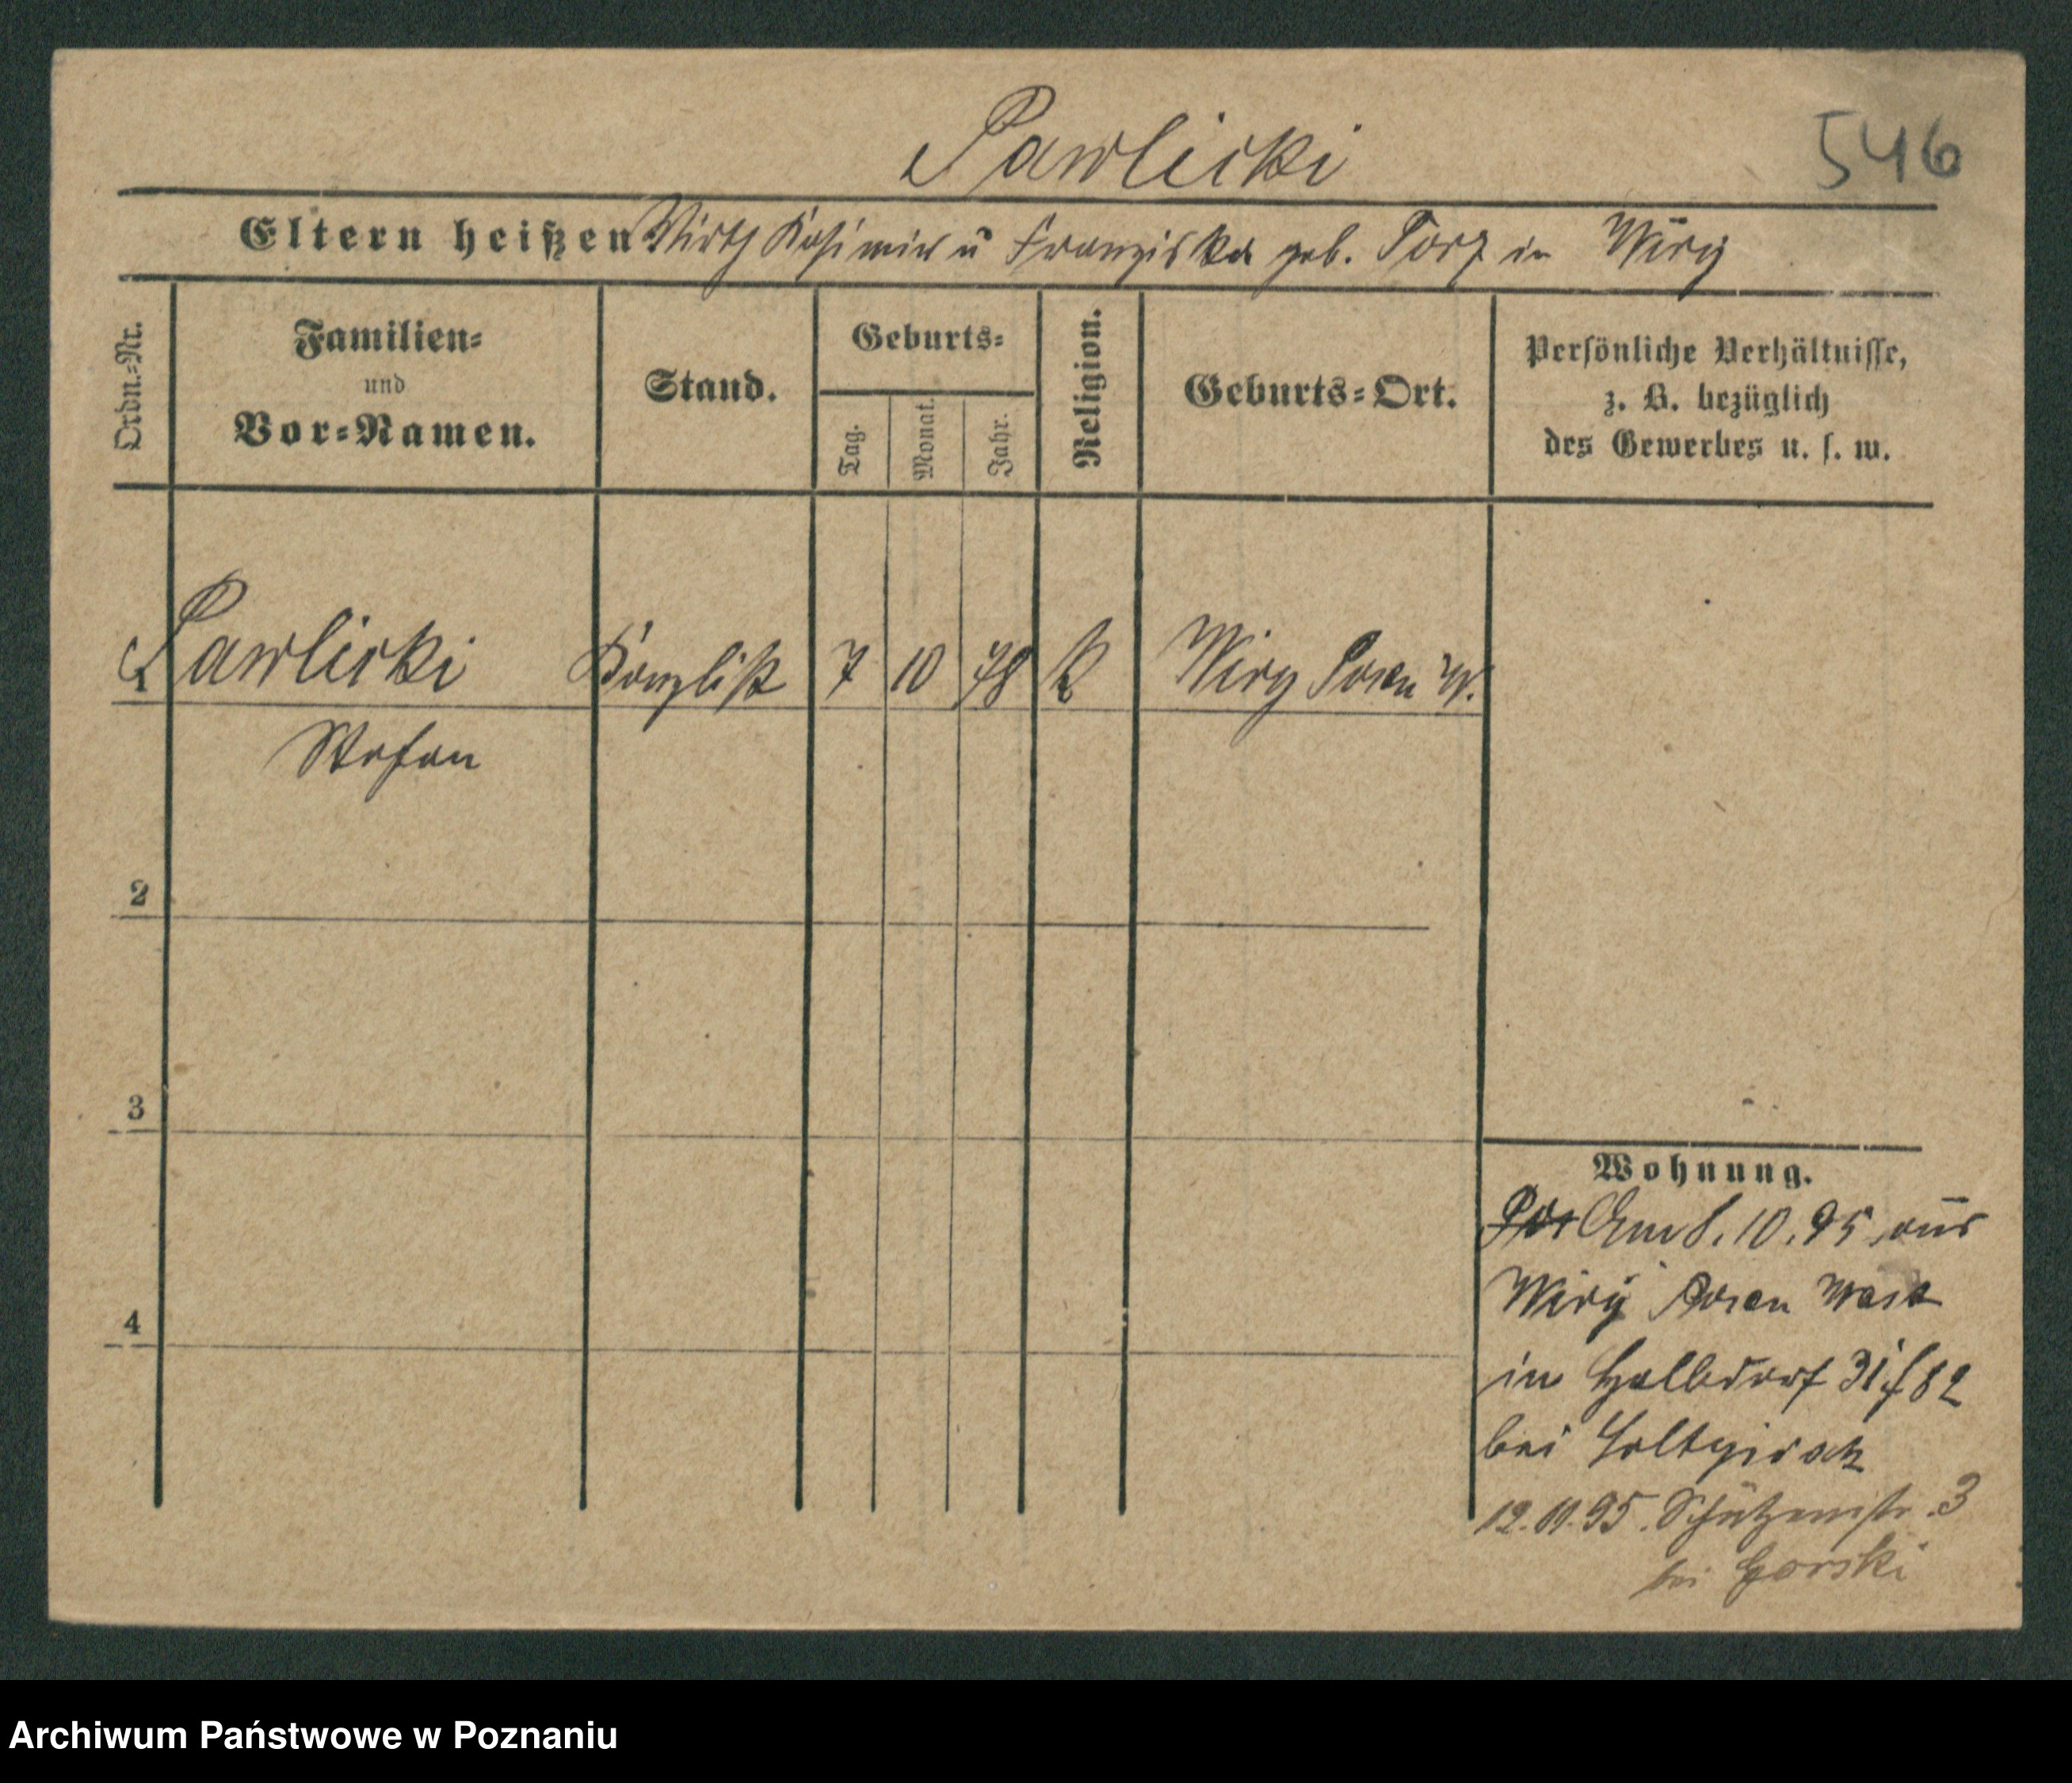 Pawlicki
546
Eltern heißen Wirth Kasimir u Franziska geb. Torz in Wiry
Ordn.-Nr.
Familien-
und
Vor-Namen.
Stand.
Geburts-
Tag.
Monat.
Jahr.
Religion.
Geburts-Ort.
Persönliche Verhältnisse,
z. B. bezüglich
des Gewerbes u. s. w.
1 Pawlicki Kanzlist 7 10 78 k Wiry Posen W.
Stefan
2
3
4
Wohnung.
8. 10. 95 aus
Wiry Posen West
in Halbdorf 31
bei
12. 11. 95. Schützenstr. 3
bei Gorski
Archiwum Państwowe w Poznaniu